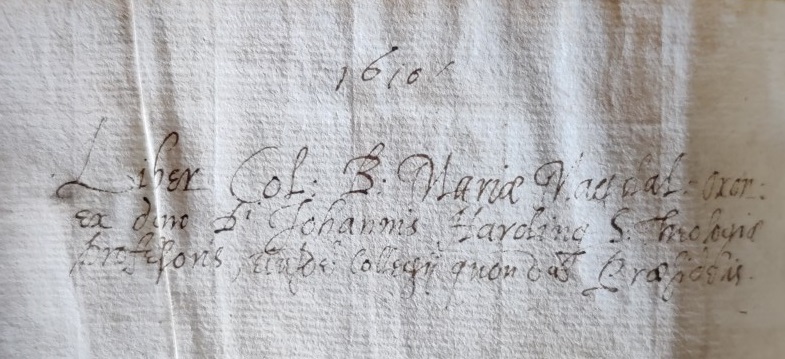 1610
Liber Col: B: Mariæ Magdal: oxon:
ex dono Dⁱ Johannis Harding S. Theologiæ
professoris, eiusdē Collegij quondā Præsidis.